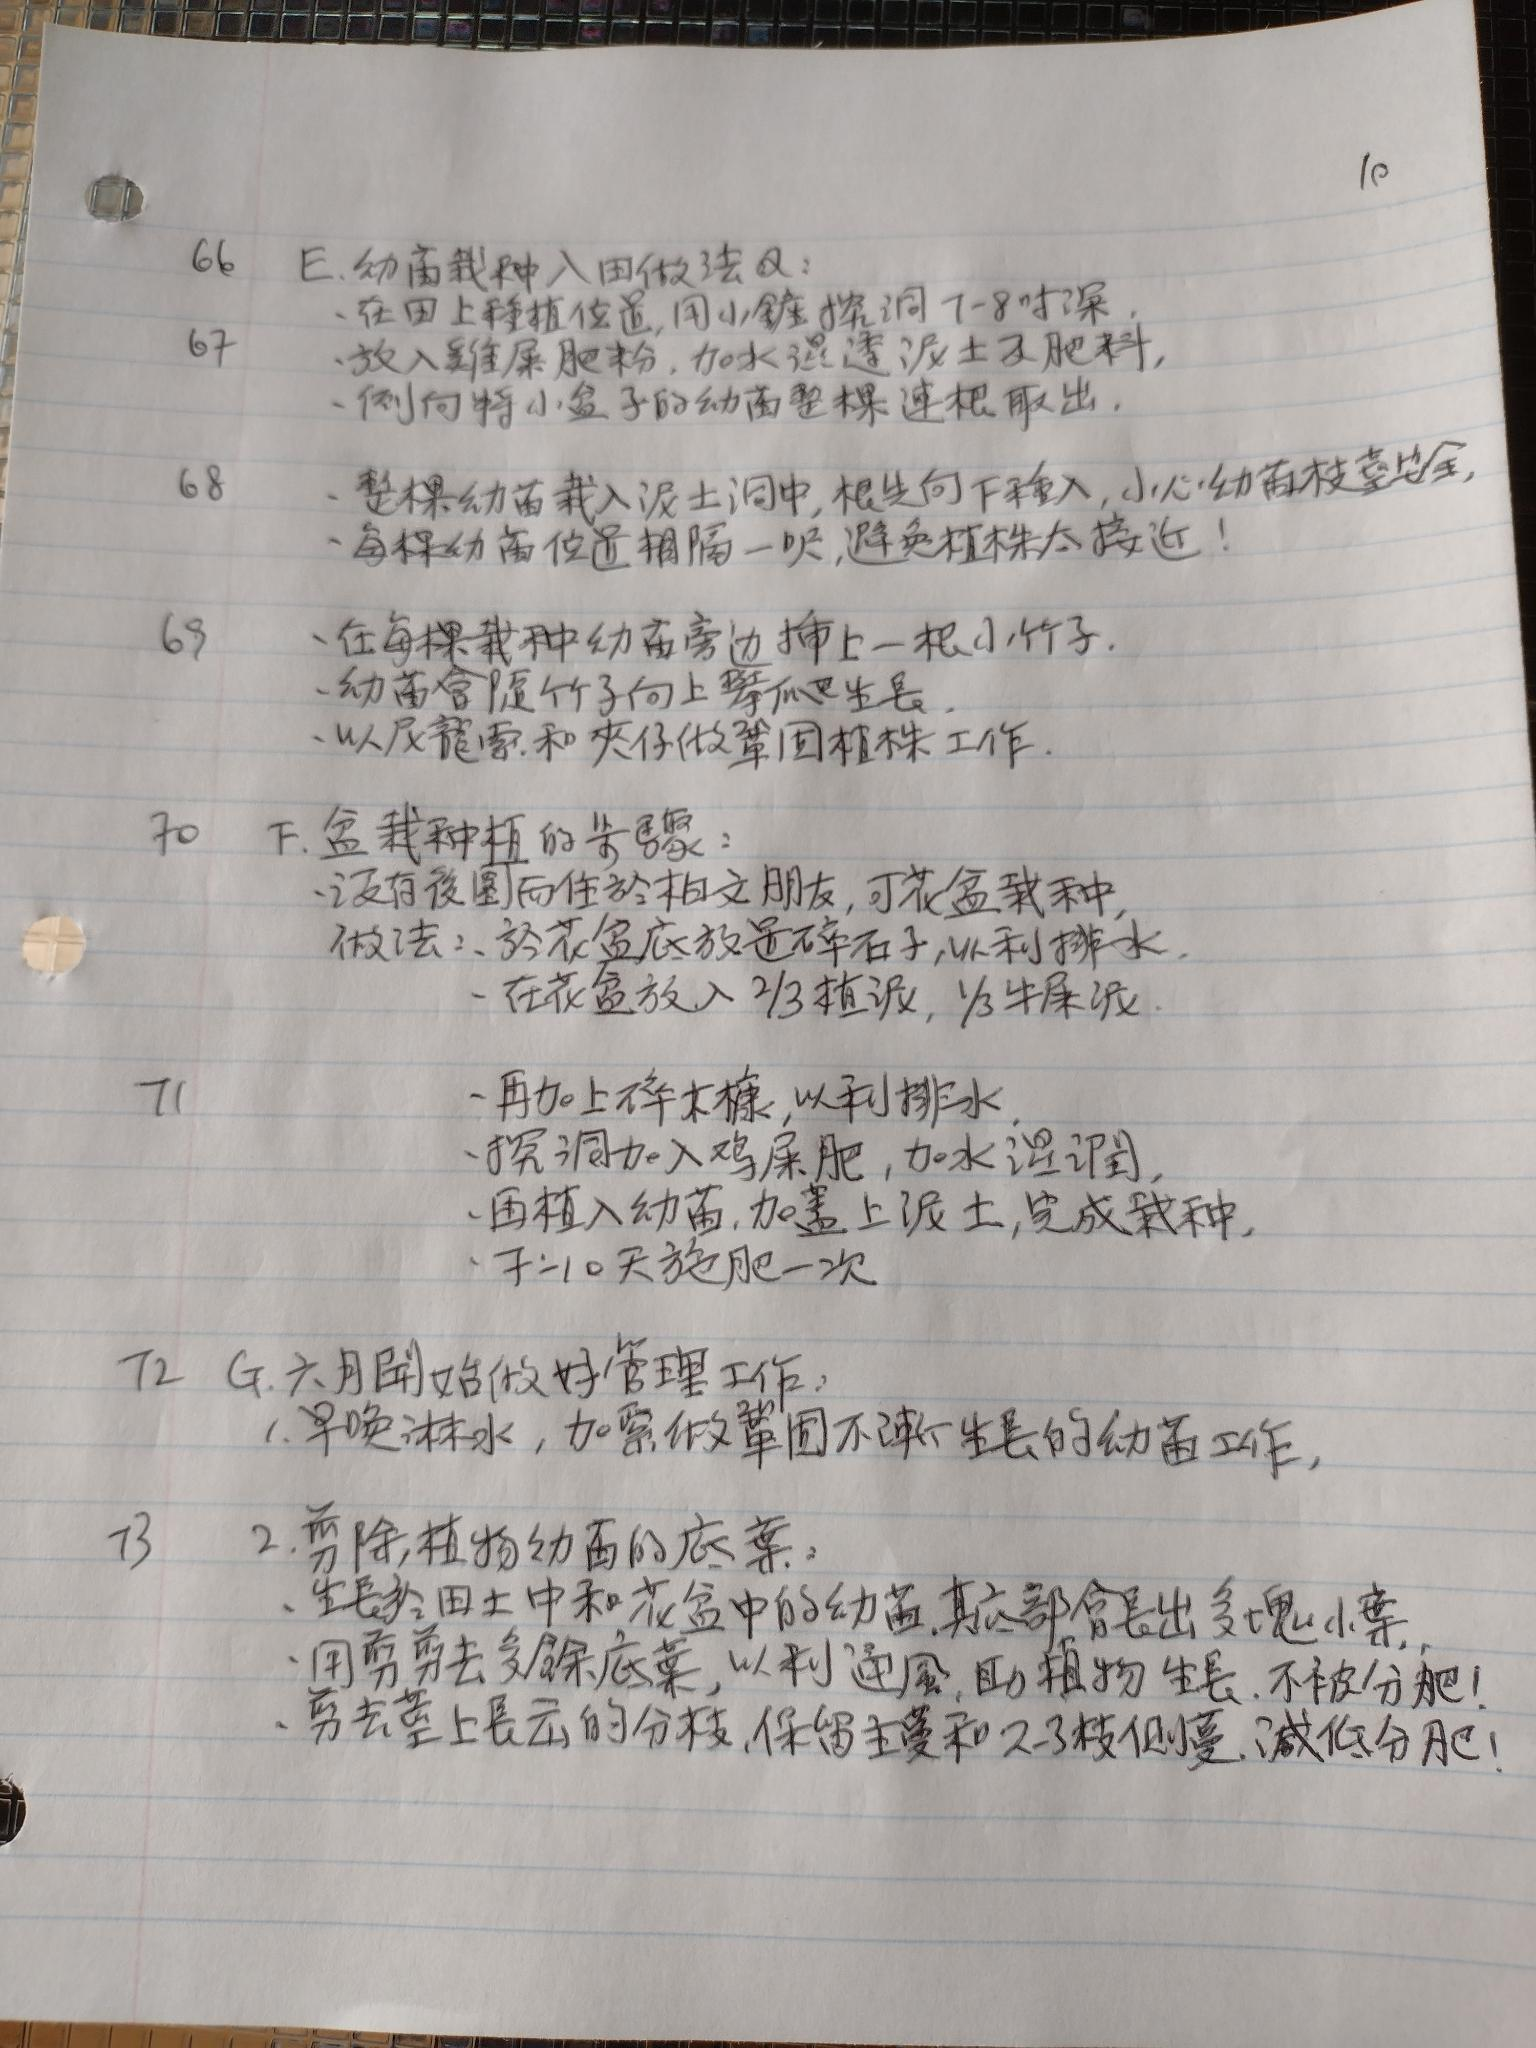 10
66 E. 幼苗栽种入田做法:
、在田上種植位置,用小鏟挖洞7-8吋深.
67 、放入雞屎肥粉,加水混透泥土及肥料,
、側向將小盆子的幼苗整棵連根取出.
68 、整棵幼苗栽入泥土洞中,根先向下種入,小心幼苗枝莖
、每棵幼苗位置相隔一呎,避免植株太接近!
69 、在每棵栽种幼苗旁边插上一根小竹子.
、幼苗會隨竹子向上攀爬生長.
、以尼龍索和夾仔做鞏固植株工作.
70 F. 盆栽种植的步驟:
、沒有後園而住於柏文朋友,可花盆栽种,
做法:、於花盆底放置碎石子,以利排水.
、在花盆放入2/3植泥,1/3牛屎泥.
71 、再加上碎木糠,以利排水,
、挖洞加入鸡屎肥,加水混潤,
、再植入幼苗,加蓋上泥土,完成栽种,
、于=10天施肥一次
72 G. 六月開始做好管理工作:
1. 早晚淋水,加緊做鞏固不斷生長的幼苗工作,
73 2. 剪除植物幼苗的底葉:
、生長於田土中和花盆中的幼苗,其底部會長出多塊小葉,
、用剪剪去多餘底葉,以利通風,助植物生長.不被分肥!
、剪去莖上長出的分枝,保留主蔓和2-3枝側蔓,減低分肥!